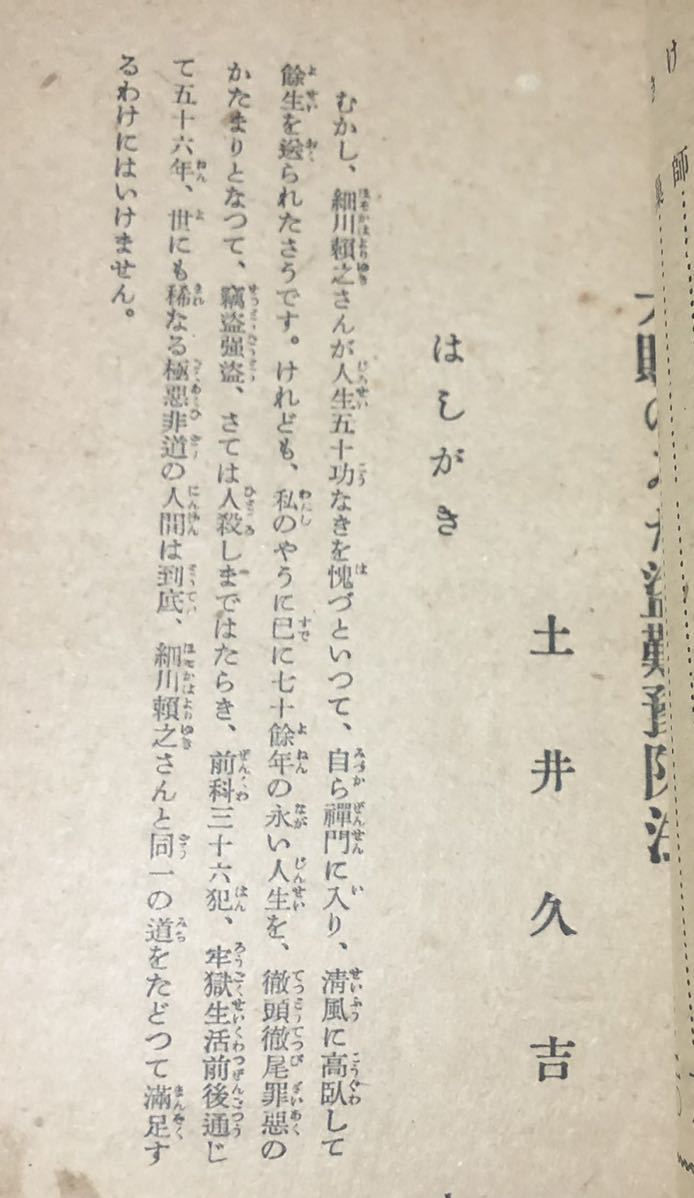 盗難予防法
土井久吉
はしがき
むかし、細川頼之さんが人生五十功なきを愧づといつて、自ら禪門に入り、清風に高臥して
餘生を送られたさうです。けれども、私のやうに已に七十餘年の永い人生を、徹頭徹尾罪惡の
かたまりとなつて、竊盜强盜、さては人殺しまではたらき、前科三十六犯、牢獄生活前後通じ
て五十六年、世にも稀なる極惡非道の人間は到底、細川頼之さんと同一の道をたどつて滿足す
るわけにはいけません。